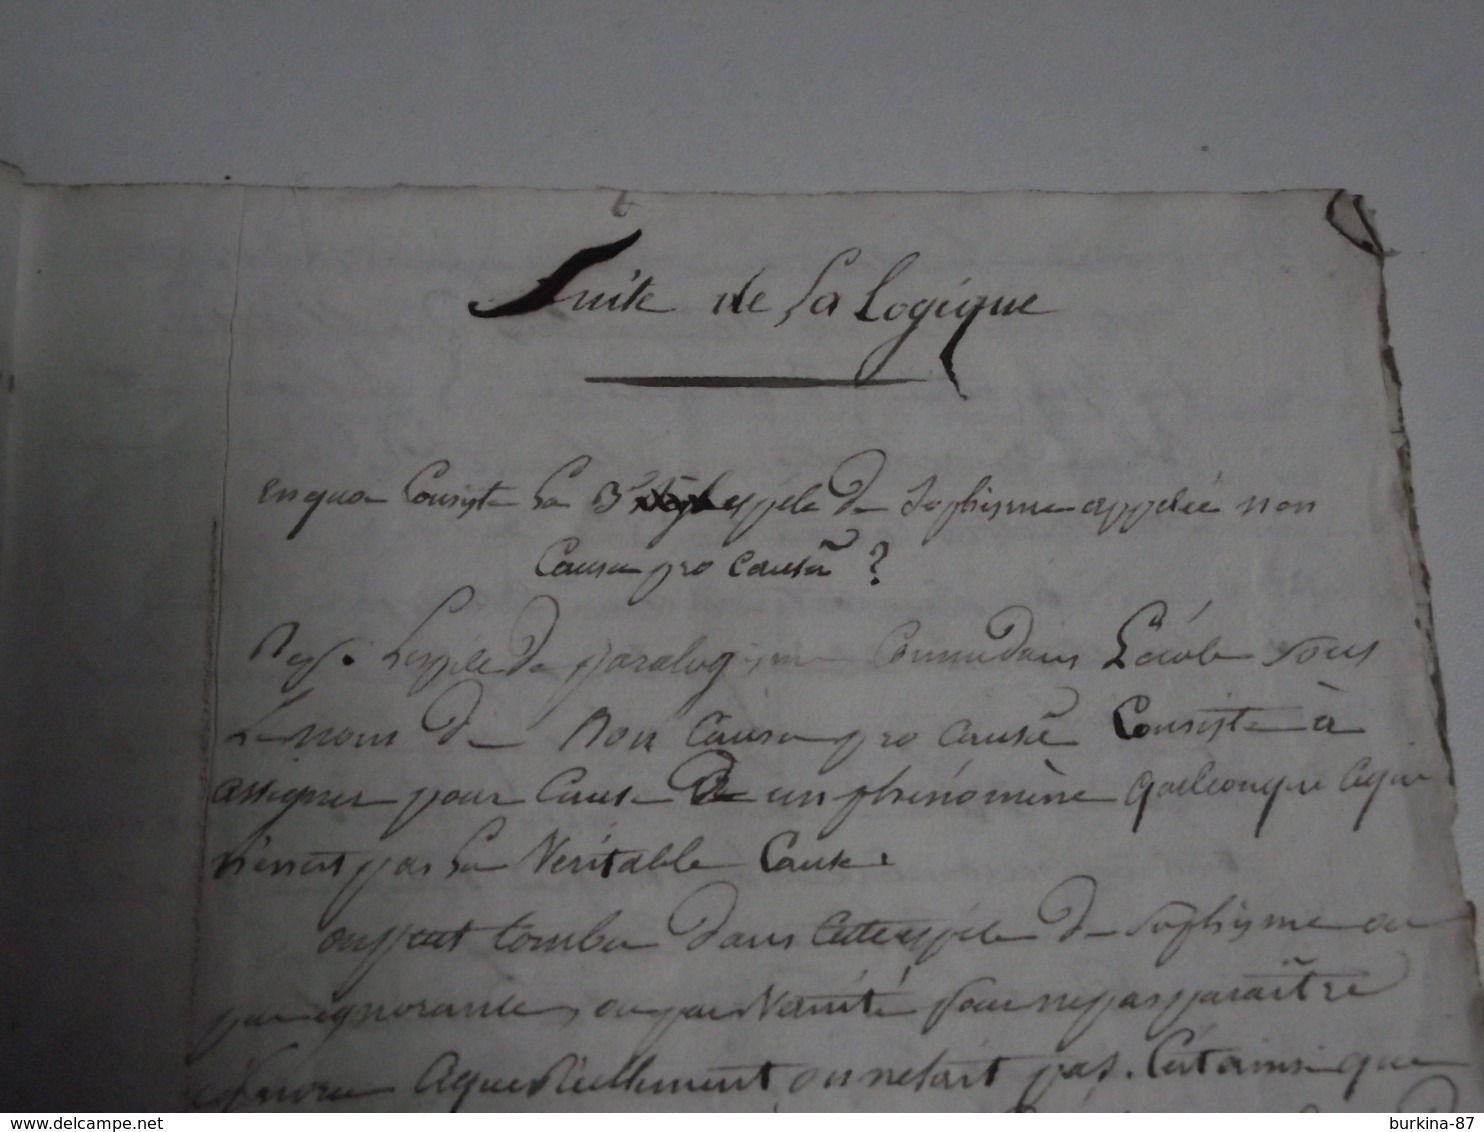 Suite de la Logique
en quoi Consiste la 3e espéce de Sophisme appelée non
Causa pro causâ ?
Rep. L'espéce de paralogisme Connu dans L'école sous
Le nom de Non Causa pro causâ Consiste à
assigner pour Cause de un phénomène quelconque ce qui
n'en est pas la Véritable Cause.
on peut tomber dans cette espéce de Sophisme ou
par ignorance, ou par Vanité pour ne pas paraître
ignorer ce que réellement on ne sait pas. C'est ainsi que
burkina-87